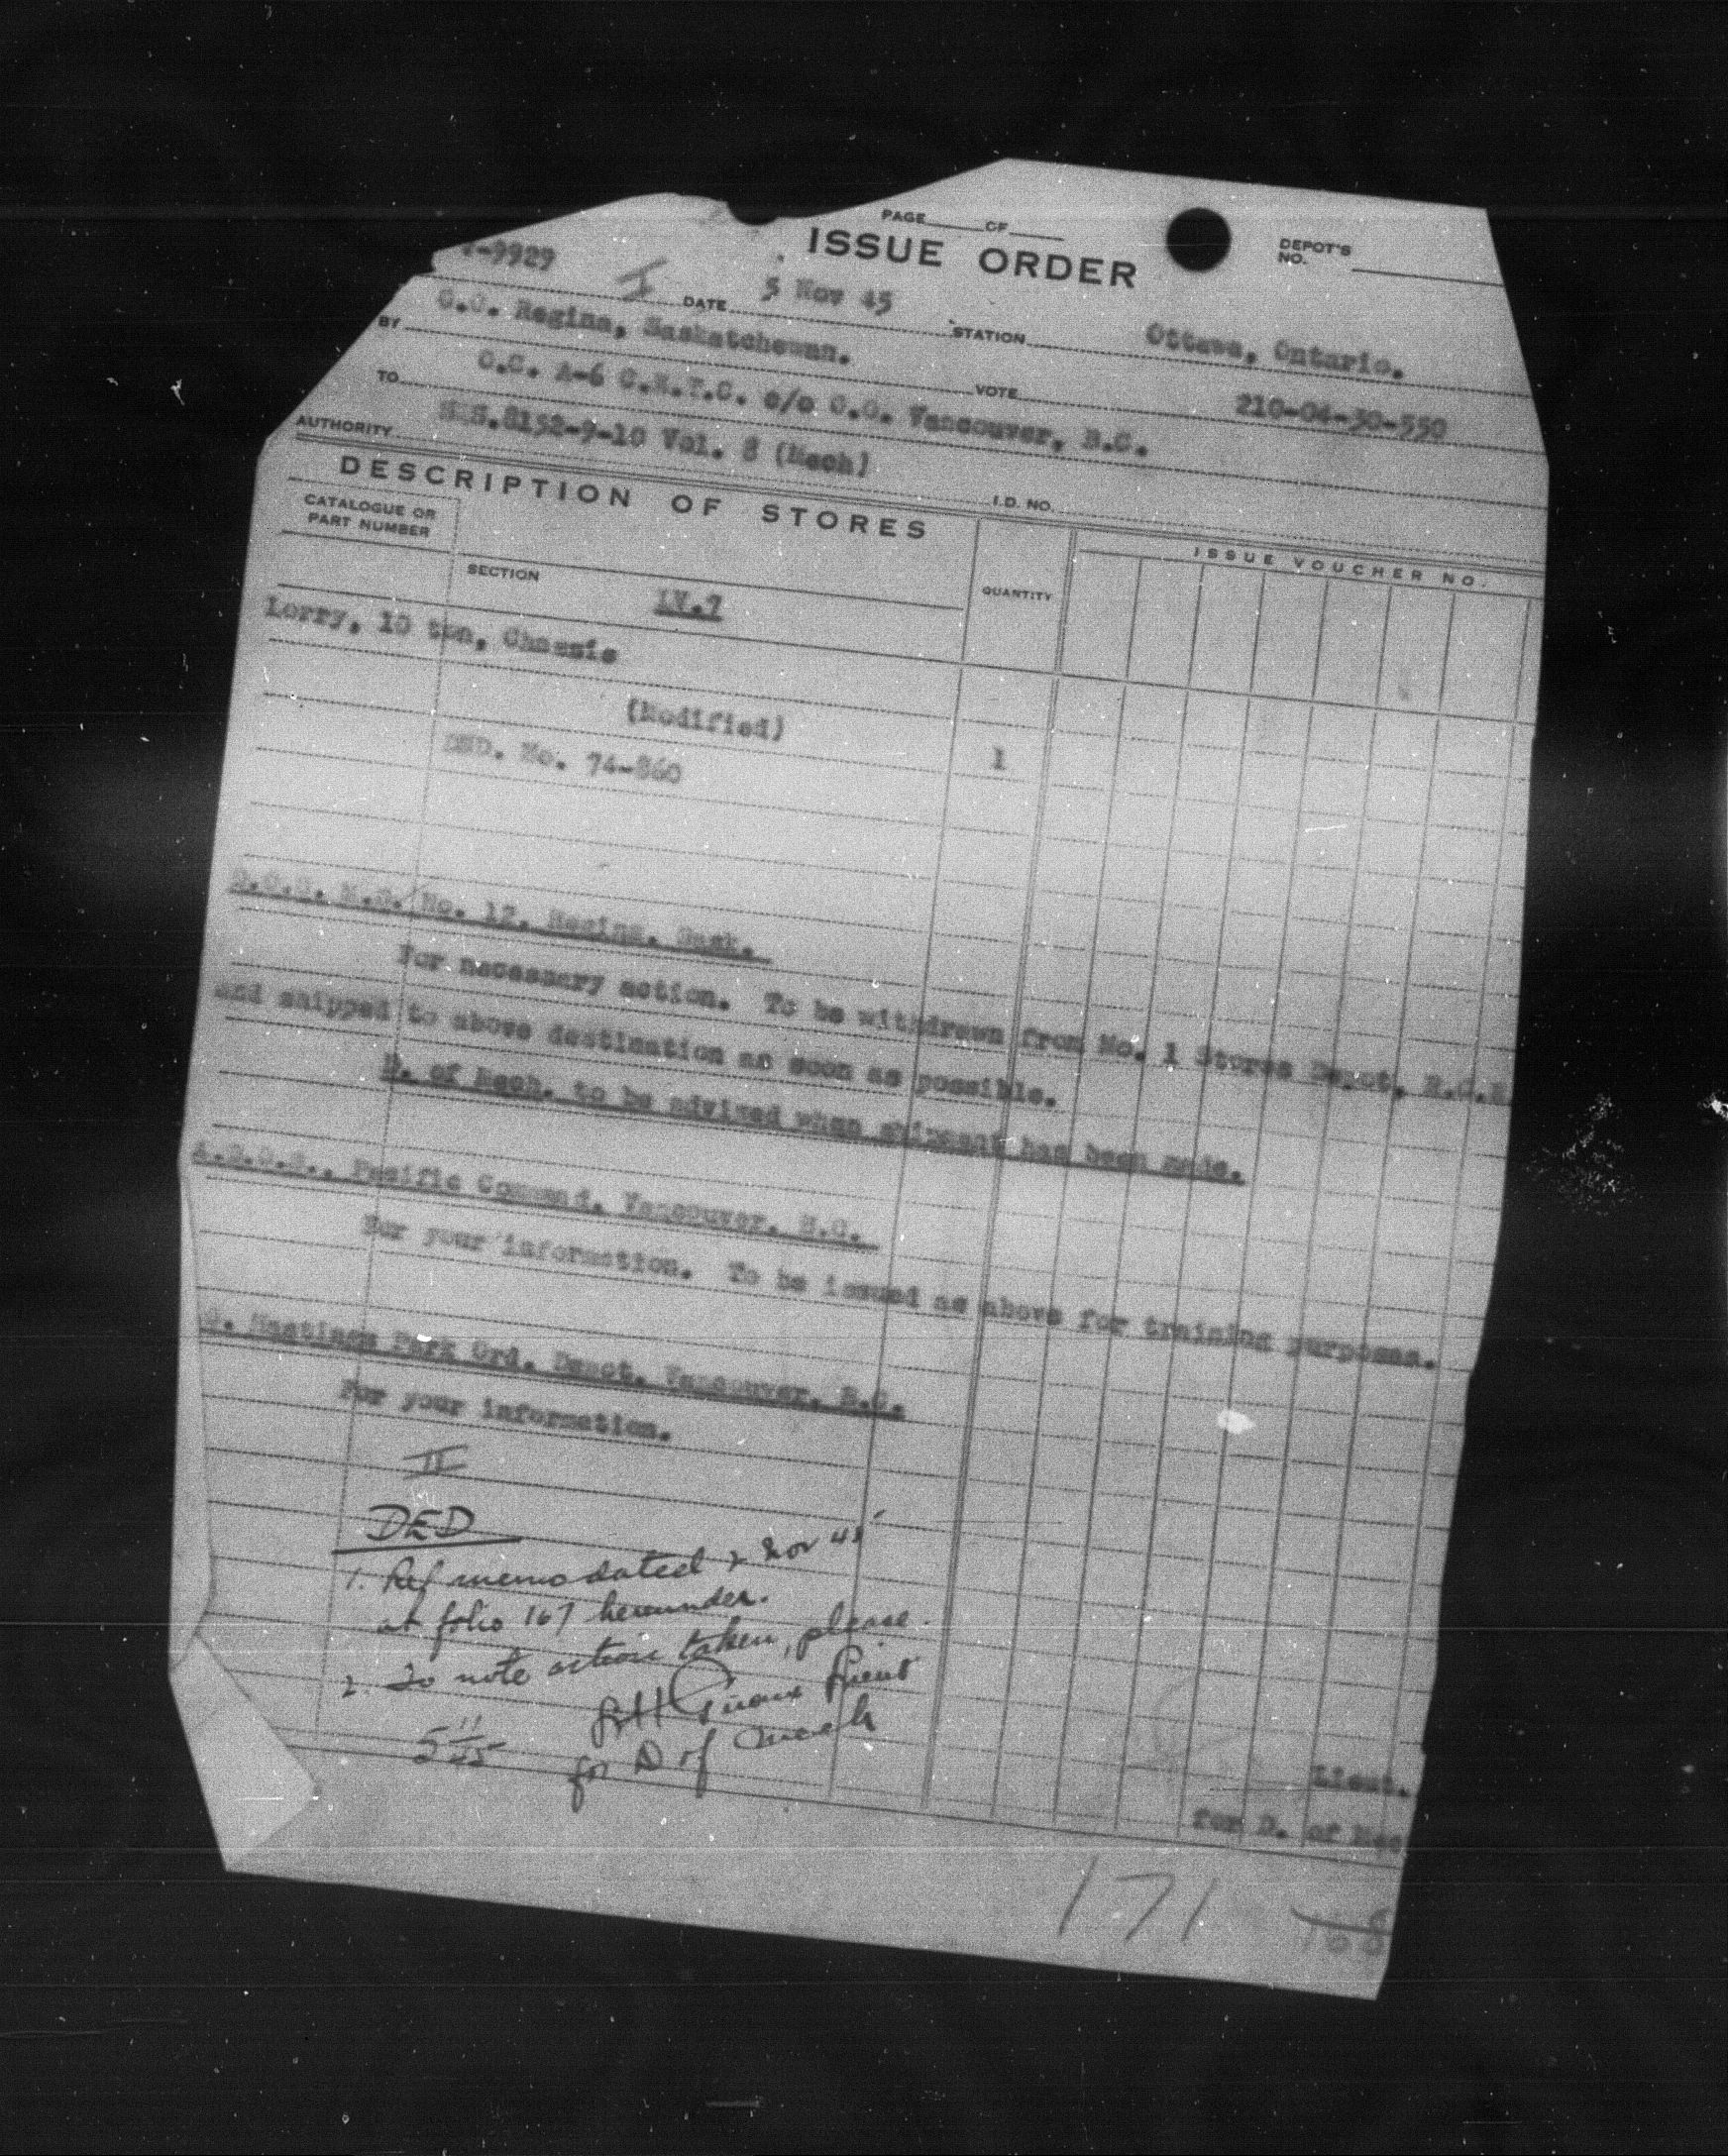 PAGE OF
ISSUE ORDER
DEPOT'S
NO.
-9929
I
DATE 5 Nov 45
STATION Ottawa, Ontario.
BY O.O. Regina, Saskatchewan.
VOTE 210-04-30-550
TO O.C. A-6 C.M.T.C. c/o O.O. Vancouver, B.C.
AUTHORITY HQS.8152-9-10 Vol. 8 (Mech)
I.D. NO.
DESCRIPTION OF STORES
CATALOGUE OR
PART NUMBER
QUANTITY
ISSUE VOUCHER NO.
SECTION LV.7
Lorry, 10 ton, Chassis
(Modified)
DND. No. 74-860 1
D.O.S. M.D. No. 12, Regina, Sask.
For necessary action. To be withdrawn from No. 1 Stores Depot, R.C.E.
and shipped to above destination as soon as possible.
D. of Mech. to be advised when shipment has been made.
A.D.O.S., Pacific Command, Vancouver, B.C.
For your information. To be issued as above for training purposes.
O. Hastings Park Ord. Depot, Vancouver, B.C.
For your information.
II
DED
1. Ref memo dated 2 Nov 45
at folio 167 hereunder.
2. To note action taken, please.
Lieut
5 11/45
for D of Mech
Lieut.
for D. of Mec
171
168